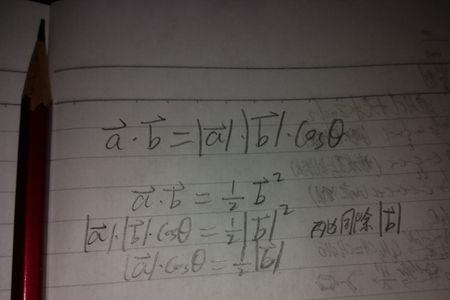 a⃗·b⃗=|a⃗|·|b⃗|·cosθ
a⃗·b⃗=½b⃗²
|a⃗|·|b⃗|·cosθ=½|b⃗|² 两边同除|b⃗|
|a⃗|·cosθ=½|b⃗|